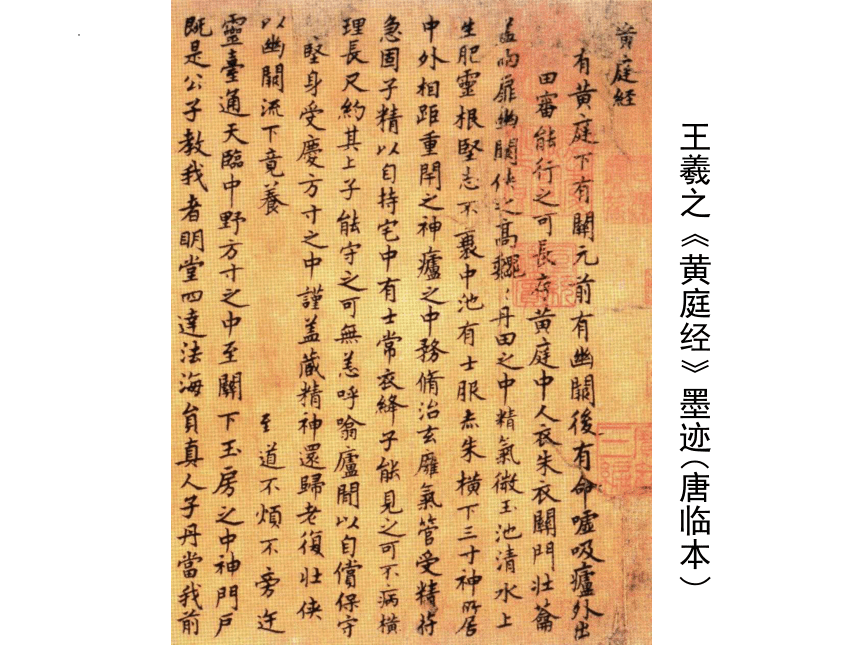 王羲之《黄庭经》墨迹(唐临本)
黄庭经
有黄庭下有關元前有幽闕後有命嘘吸廬外出
田審能行之可長存黄庭中人衣朱衣關門壮籥
盖两扉幽闕侠之高巍:丹田之中精氣微玉池清水上
生肥靈根堅志不衰中池有士服赤朱横下三寸神所居
中外相距重閇之神廬之中務脩治玄雍氣管受精符
急固子精以自持宅中有士常衣絳子能見之可不病横
理長尺約其上子能守之可無恙呼噏廬間以自償保守
堅身受慶方寸之中謹盖藏精神還歸老復壮侠
以幽闕流下竟養 至道不煩不旁迕
靈臺通天臨中野方寸之中至關下玉房之中神門户
既是公子教我者明堂四達法海貟真人子丹當我前